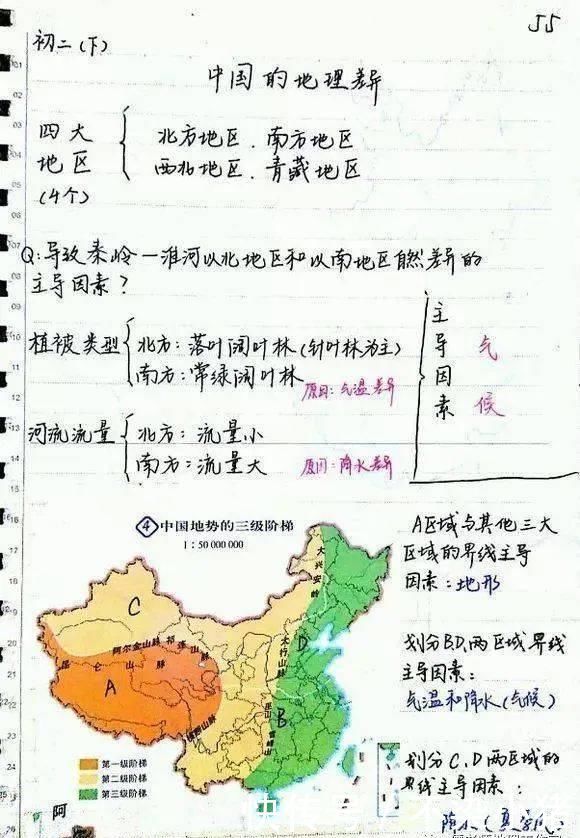 55
初二(下)
中国的地理差异
四大地区(4个)
北方地区、南方地区
西北地区、青藏地区
Q:导致秦岭一淮河以北地区和以南地区自然差异的
主导因素?
植被类型
北方:落叶阔叶林(针叶林为主)
南方:常绿阔叶林
原因:气温差异
河流流量
北方:流量小
南方:流量大
原因:降水差异
主导因素
气候
④中国地势的三级阶梯
1:50 000 000
大兴安岭
C
阿尔金山脉
祁连山脉
昆仑山脉
太行山脉
D
A
巫山
B
雪峰山
横断山脉
第一级阶梯
第二级阶梯
第三级阶梯
A区域与其他三大
区域的界线主导
因素:地形
划分BD两区域界线
主导因素:
气温和降水(气候)
划分C、D两区域的
界线主导因素:
阿